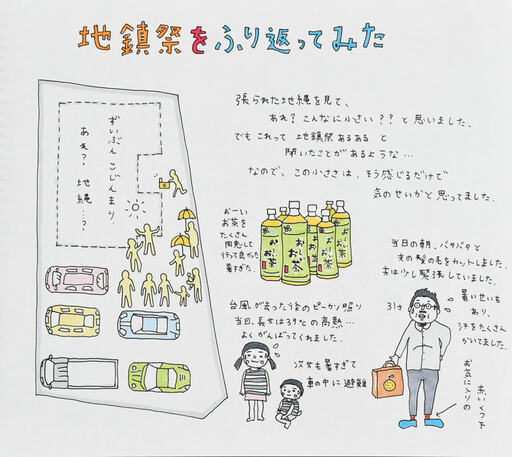 地鎮祭をふり返ってみた
張られた地縄を見て、
あれ？こんなに小さい？？と思いました。
でもこれって 地鎮祭あるある と
聞いたことがあるような…
なので、この小ささは、そう感じるだけで
気のせいかと思ってました。
ずいぶん こじんまり
あれ？ 地縄…？
おーい
お茶を
たくさん
用意して
行って良かった
暑すぎた。
お～いお茶
お～いお茶
当日の朝、バタバタと
夫の髪の毛をカットしました。
夫は少し緊張していました。
31才
暑いせいも
あり、
汗をたくさん
かいてました。
台風が去った後のピーカン照り
当日、長女は39℃の高熱…
よくがんばってくれました。
次女も暑すぎて
車の中に避難
お気に入りの
赤いくつ下